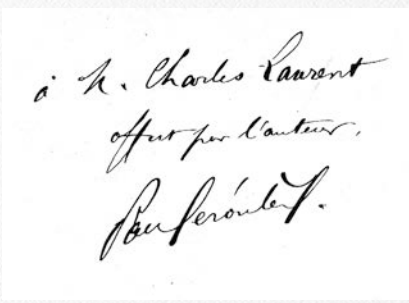 à M. Charles Laurent
offert par l'auteur.
Paul Déroulède.